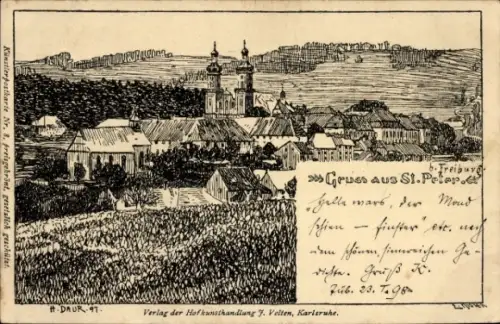 Künstlerpostkarte Nr. 3, preisgekrönt, gesetzlich geschützt.
b. Freiburg
Gruss aus St. Peter
"Helle wars, der Mond
schien – finster" etc. nach
dem schönen, sinnreichen Ge-
dichte. Gruß K.
Tüb. 23. I. 98.
H. DAUR. 97.
Verlag der Hofkunsthandlung J. Velten, Karlsruhe.